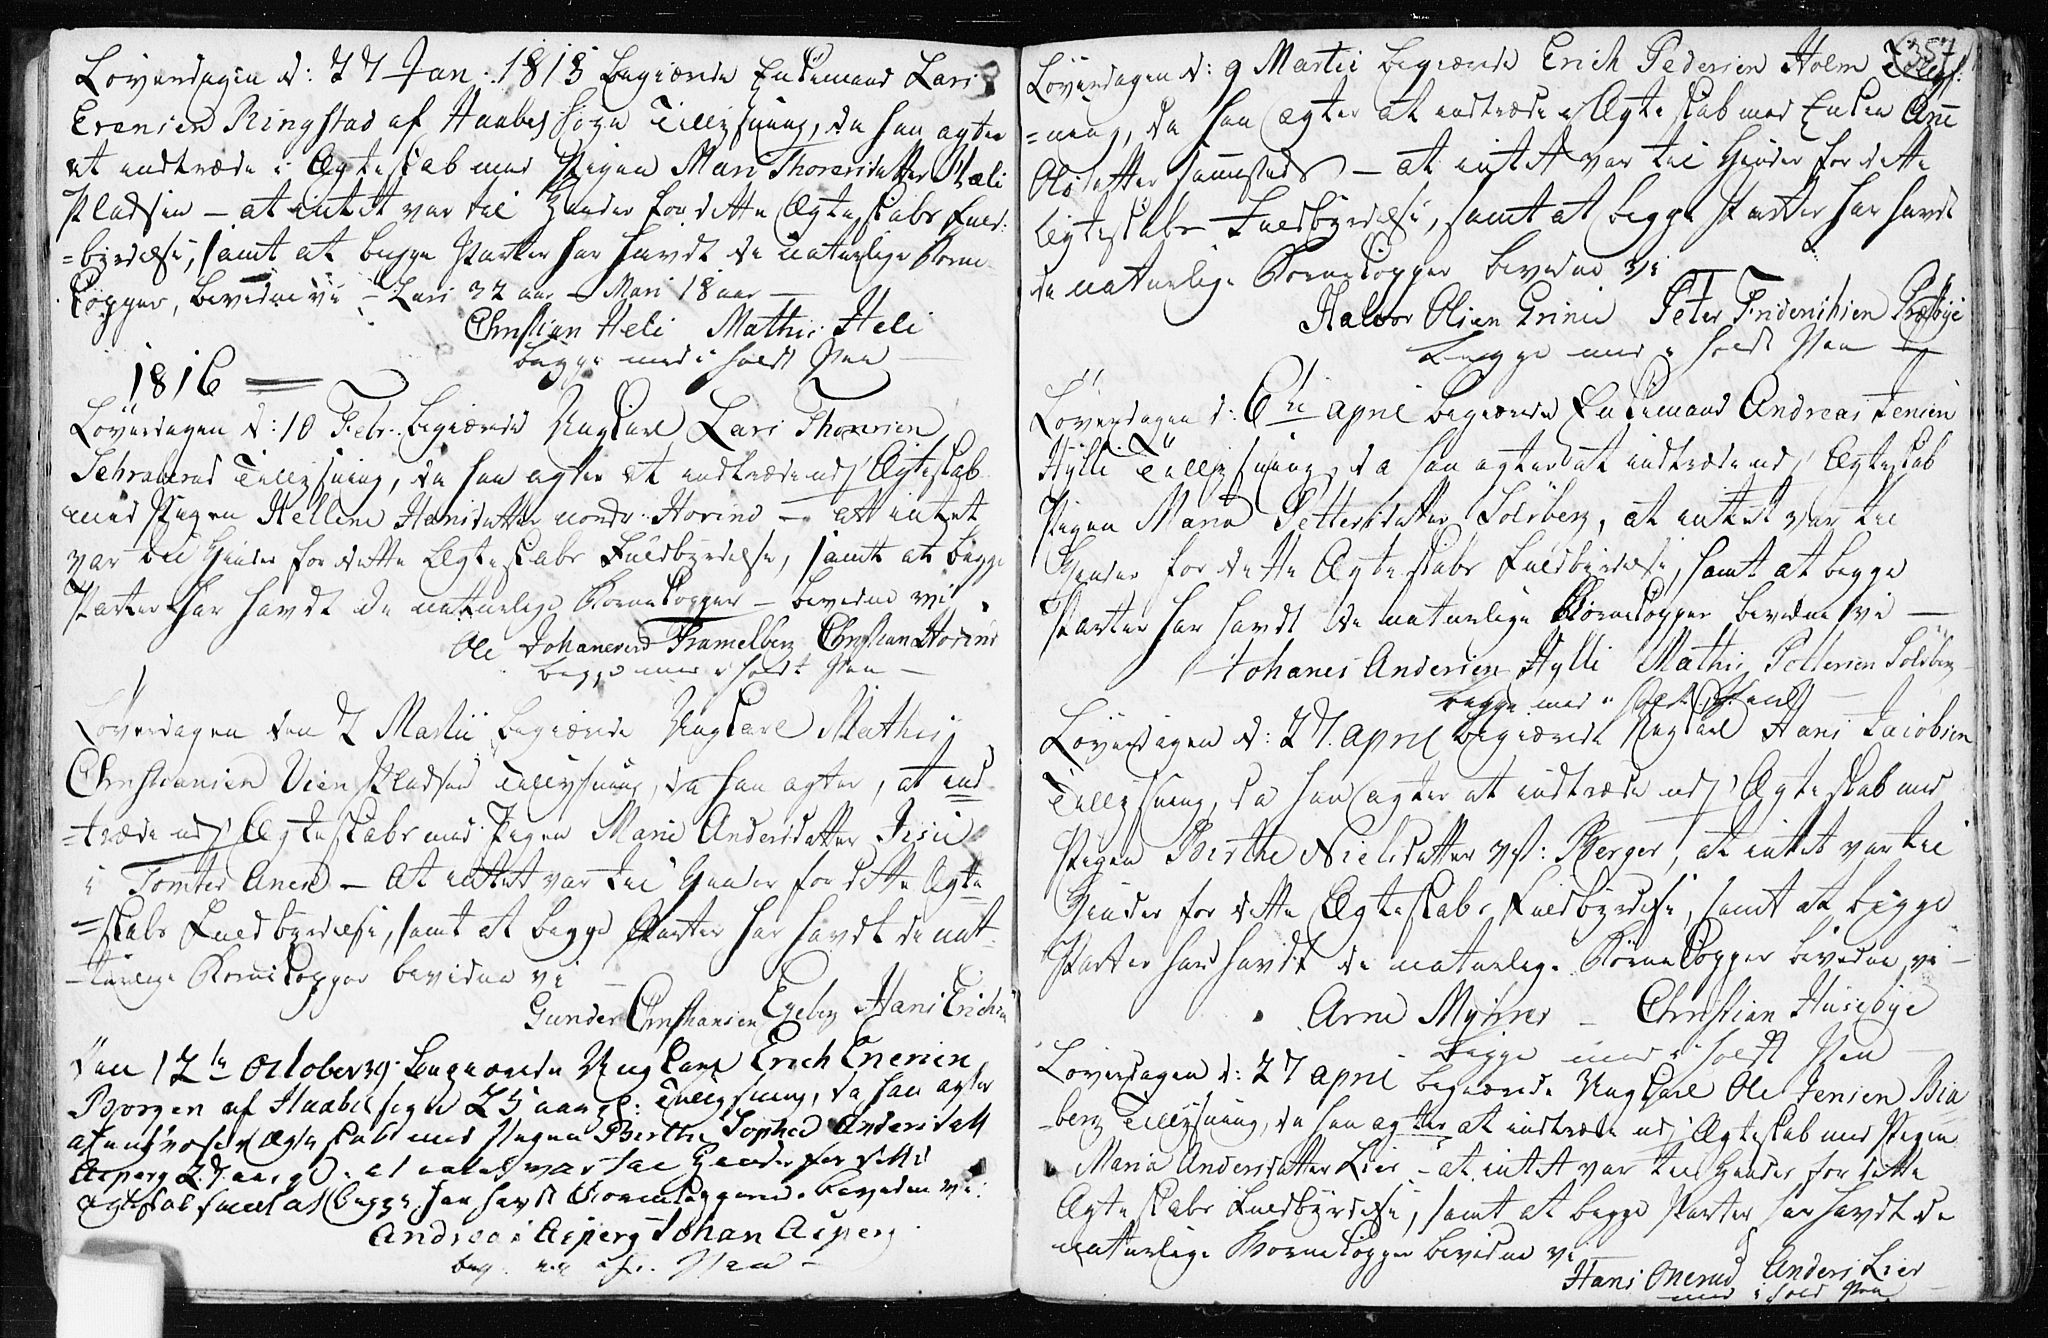 Löverdagen d: 27 Jan. 1815 begiærede Enkemand Lars
Evensen Ringstad af Haabøl Sogn Tillysning, da han agter
at indtræde i Ægteskab med Pigen Mari Thorersdatter Hæli
Pladsen – at intet var til Hinder for dette Ægteskabs Fuld-
=byrdelse, samt at begge Parter har havdt de naturlige Borne-
kopper, bevidne vi – Lars 32 aar – Mari 18 aar –
Christian Heli Mathis Heli
begge med i holdt Pen –
1816 =
Löverdagen d: 10 Febr. begiærede Ungkarl Lars Thorersen
Schraperud Tillysning, da han agter at indtræde udj Ægteskab
med Pigen Hellene Hansdatter nordr. Hovind – at intet
var til Hinder for dette Ægteskabs Fuldbyrdelse, samt at begge
Parter har havdt de naturlige Bornekopper – bevidne vi
Ole Johanesen Framelberg Christian Hovind
begge med i holdt Pen –
Löverdagen den 2 Martii begiærede Ungkarl Mathis
Christiansen Vien Pladsen Tillysning, da han agter, at ind
=træde udj Ægteskabs med Pigen Marie Andersdatter
i Tomter Anex – At intet var til Hinder for dette Ægte
=skabs Fuldbyrdelse, samt at begge Parter har havdt de nat-
-turlige Bornekopper bevidne vi –
Gunder Christiansen Egeberg Hans Erichsen
Den 12te October begiærede Ungkarl Erich Enersen
Bjørgen af Haabøl Sogn 25 aar gl: Tillysning, da han agter
at indtræde i Ægteskab med Pigen Berthe Sophia Andersdatt
Asperg 27 aar gl. at intet var til Hinder for dette
Ægteskab samt at begge har havdt Bornekopperne bevidne vi:
Andreas Asperg Johan Asperg
beg. med i h. Pen –
357
Löverdagen d: 9 Martii begiærede Erich Pedersen Holm Tillys:
=ning, da han agter at indtræde i Ægteskab med Enken Ane
Olsdatter sammesteds – at intet var til Hinder for dette
Ægteskabs Fuldbyrdelse, samt at begge Parter har havdt
de naturlige Bornekopper bevidne vi
Halvor Olsen Grinie Peter Friderichsen Præstøye
begge med i holdt Pen –
Löverdagen d: 6te April begiærede Enkemand Andreas Jensen
Hylli Tillysning, da han agter at indtræde udj Ægteskab
Pigen Maria Pettersdatter Solberg, at intet var til
Hinder for dette Ægteskabs Fuldbyrdelse, samt at begge
Parter har havdt de naturlige Bornekopper bevidne vi –
Johanes Andersen Hylli Mathis Pettersen Solberg
begge med i holdt Pen
Löverdagen d: 27. April begiærede Ungkarl Hans Jacobsen
Tillysning, da han agter at indtræde udj Ægteskab med
Pigen Berthe Nielsdatter vest: Berger, at intet var til
Hinder for dette Ægteskabs Fuldbyrdelse, samt at begge
Parter har havdt de naturlige Bornekopper bevidne vi –
Arne Myhrer – Christian Husebye
begge med i holdt Pen
Löverdagen d: 27 April begiærede Ungkarl Ole Jensen Bia
=berg Tillysning, da han agter at indtræde udj Ægteskab med Pigen
Maria Andersdatter Lier – at intet var til Hinder for dette
Ægteskabs Fuldbyrdelse, samt at begge Parter har havdt de
naturlige Bornekopper bevidne vi
Hans Onerud Anders Lier
med i hold Pen